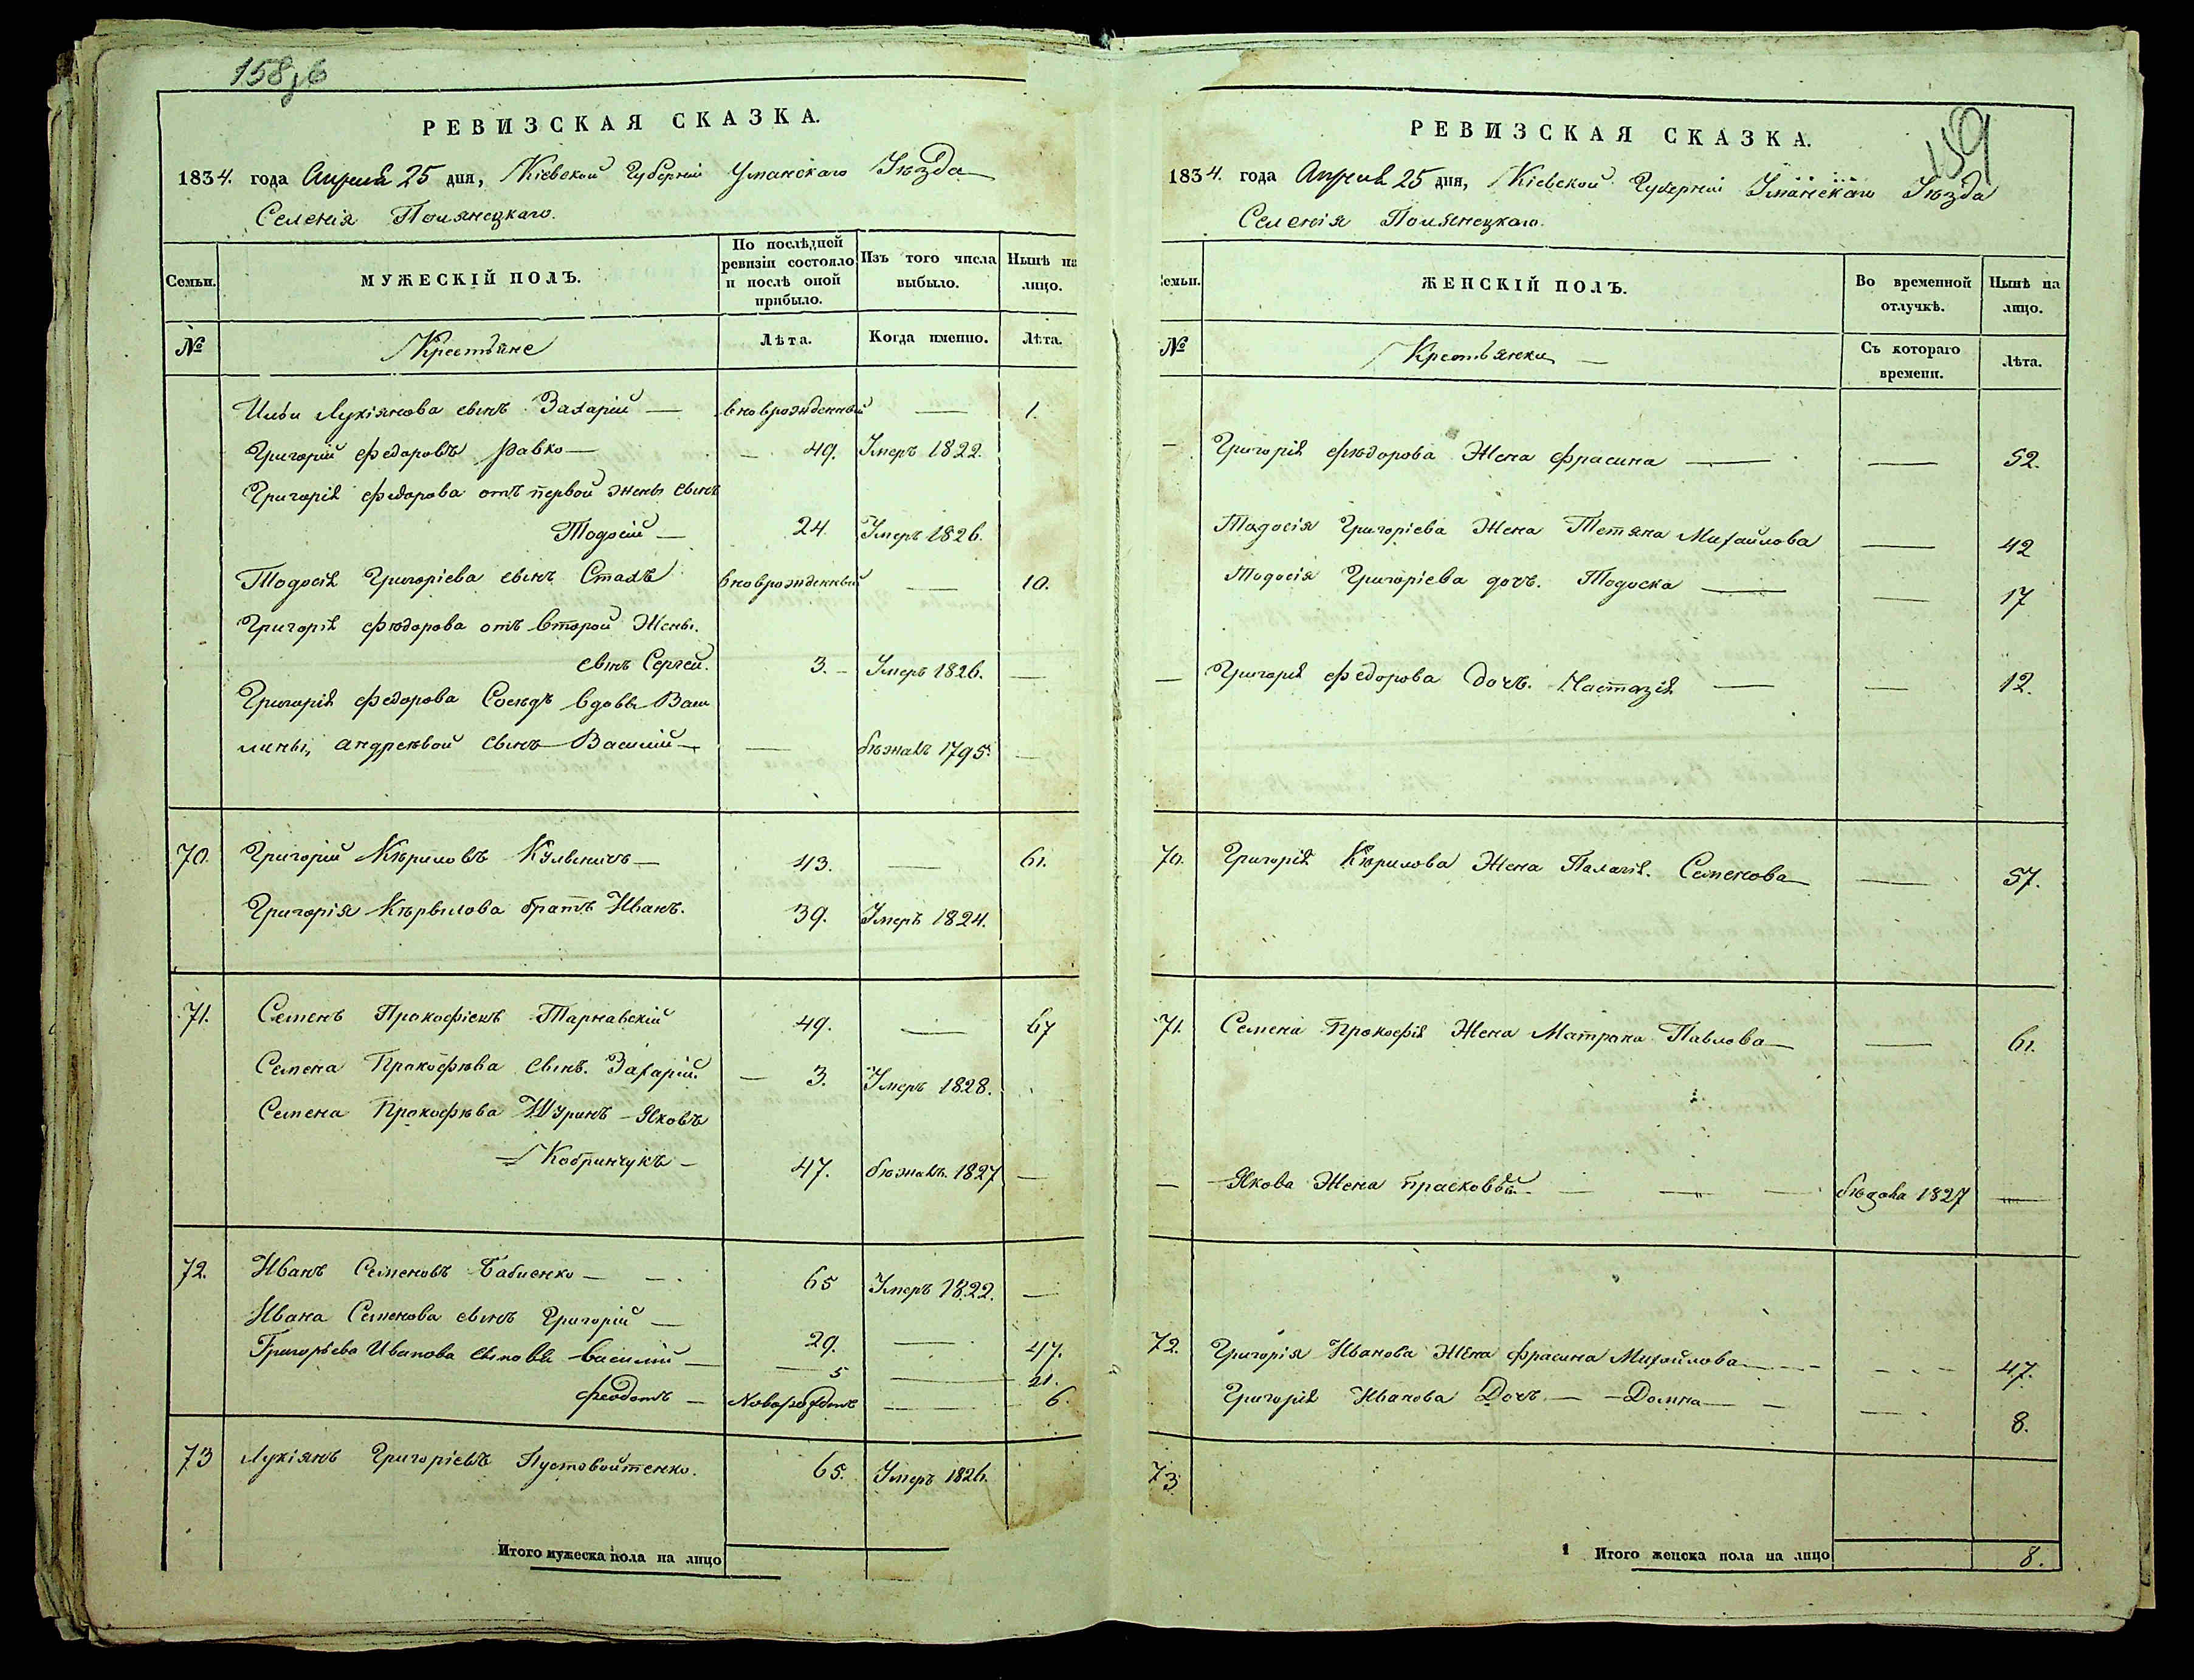 158 об
РЕВИЗСКАЯ СКАЗКА.
1834. года Апреля 25 дня, Кіевской Губерніи Уманскаго Уезда
Селенія Полянецкаго.
Семьи.
МУЖЕСКІЙ ПОЛЪ.
По послѣдней ревизіи состояло и послѣ оной прибыло.
Изъ того числа выбыло.
Нынѣ на лицо.
№
Крестьяне
Лѣта.
Когда именно.
Лѣта.
Ильи Лукіянова сынъ Захарій — вноврожденный — 1.
Григорій Федоровъ — 49. Умеръ 1822.
Григорія Федорова отъ первой жены сынъ
Тодосій — 24. Умеръ 1826.
Тодосія Григоріева сынъ Стахъ вноврожденный — 10.
Григорія Федорова отъ второй Жены.
сынъ Сергей. 3. — Умеръ 1826. —
Григорія Федорова Соседъ вдовы Васи
лины, Андреевой сынъ Василій — — бежалъ 1795. —
70. Григорій Кириловъ — 43. — 61.
Григорія Кирылова братъ Иванъ. 39. Умеръ 1824.
71. Семенъ Прокофіевъ Тарнавскій 49. — 67
Семена Прокофьева сынъ. Захарій. — 3. Умеръ 1828.
Семена Прокофьева Шуринъ — Яковъ
Кобринчукъ — 47. бежалъ. 1827 —
72. Иванъ Семеновъ Бабиенко — — 65 Умеръ 1822. —
Ивана Семенова сынъ Григорій — 29. — 47.
Григорьева Иванова сыновья Василій — 5 — 21.
Феодотъ — — 6.
73 Лукіянъ Григоріевъ Пустовойтенко. 65. Умеръ 1826.
Итого мужеска пола на лицо
159
РЕВИЗСКАЯ СКАЗКА.
1834. года Апреля 25 дня, Кіевской Губерніи Уманскаго Уезда
Селенія Полянецкаго.
Семьи.
ЖЕНСКІЙ ПОЛЪ.
Во временной отлучкѣ.
Нынѣ на лицо.
№
Крестьянки —
Съ котораго времени.
Лѣта.
— Григорія Федорова Жена Фрасина — — 52.
Тодосія Григоріева Жена Тетяна Михайлова — 42
Тодосія Григоріева дочь. Тодоска — — 17
— Григорія Федорова Дочь. Настазія — — 12.
70. Григорія Кирилова Жена Палагія. Семенова — — 57.
71. Семена Прокофія Жена Матрона Павлова — — 61.
— Якова Жена Прасковья — — — 1827 —
72. Григорія Иванова Жена Фрасина Михайлова — — 47.
Григорія Иванова Дочь — Домна — — 8.
73
Итого женска пола на лицо 8.